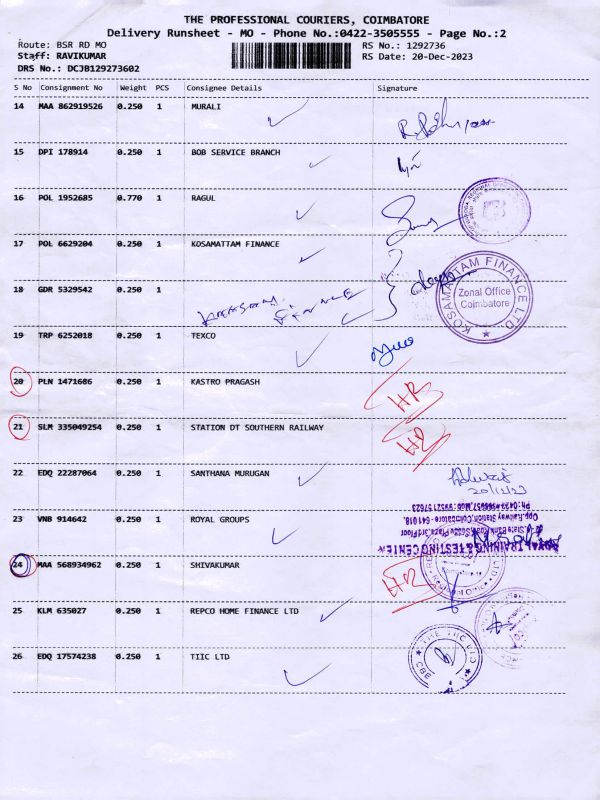 THE PROFESSIONAL COURIERS, COIMBATORE
Delivery Runsheet - MO - Phone No.:0422-3505555 - Page No.:2
Route: BSR RD MO
RS No.: 1292736
Staff: RAVIKUMAR
RS Date: 20-Dec-2023
DRS No.: DCJB129273602
S No Consignment No Weight PCS Consignee Details Signature
14 MAA 862919526 0.250 1 MURALI
15 DPI 178914 0.250 1 BOB SERVICE BRANCH
16 POL 1952685 0.770 1 RAGUL
17 POL 6629204 0.250 1 KOSAMATTAM FINANCE
KOSAMATTAM FINANCE LTD
Zonal Office
Coimbatore
18 GDR 5329542 0.250 1
19 TRP 6252018 0.250 1 TEXCO
20 PLN 1471686 0.250 1 KASTRO PRAGASH
HR
21 SLM 335049254 0.250 1 STATION DT SOUTHERN RAILWAY
HR
22 EDQ 22287064 0.250 1 SANTHANA MURUGAN
20/12/23
23 VNB 914642 0.250 1 ROYAL GROUPS
ROYAL TRAINING & TESTING CENTER
Opp.Railway Station, Coimbatore - 641 018.
24 MAA 568934962 0.250 1 SHIVAKUMAR
HR
25 KLM 635027 0.250 1 REPCO HOME FINANCE LTD
26 EDQ 17574238 0.250 1 TIIC LTD
THE TIIC LTD
CBE